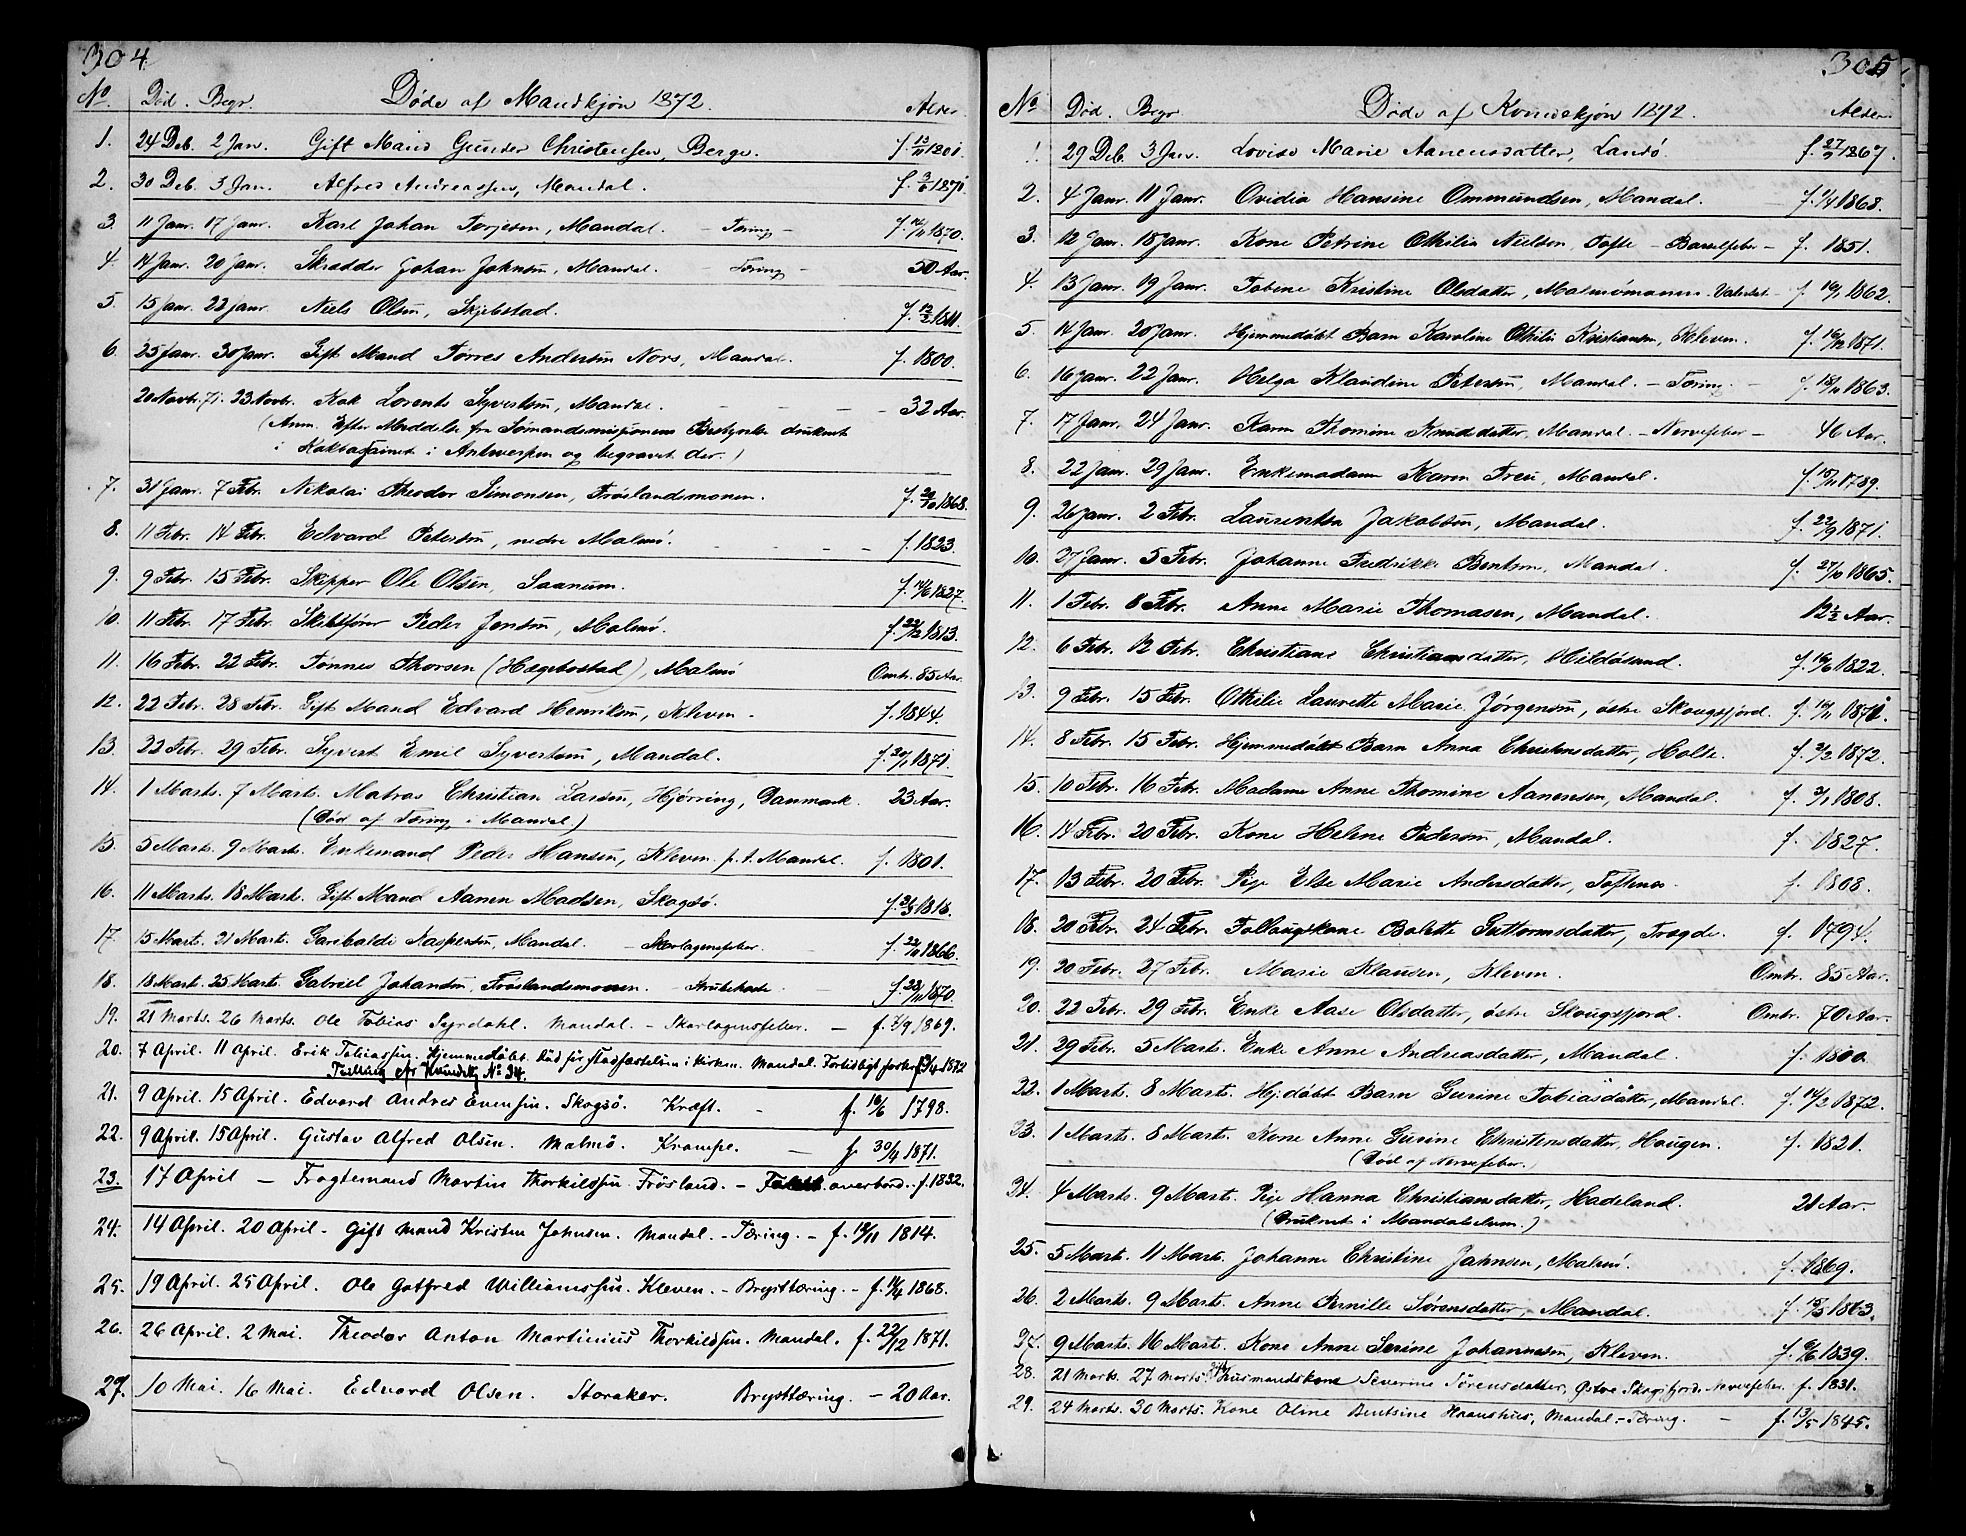 304
No. Død. Begr. Døde af Mandkjøn 1872. Alder
1. 24 Deb. 2 Jan. Gift Mand Gunder Christensen, Berge. f. 12/11 1801.
2. 30 Deb. 3 Jan. Alfred Andreassen, Mandal. f. 3/6 1871.
3. 11 Janr. 17 Janr. Karl Johan Torjesen, Mandal. - Tæring - f. 14/11 1870.
4. 14 Janr. 20 Janr. Skrædder Johan Johnsen, Mandal. - Tæring - 50 Aar.
5. 15 Janr. 22 Janr. Niels Olsen, Skjebstad. f. 12/2 1811.
6. 25 Janr. 30 Janr. Gift Mand Tørres Andersen Nors, Mandal. f. 1800.
20 Novbr. 71. 23. Novbr. Kok Lorents Syvertsen, Mandal. - - - 32 Aar.
(Anm. Efter Meddelse fra Sømandsmisjonens Bestyrelse druknet
i Kattasainet i Antwerpen og begravet der.)
7. 31 Janr. 7 Febr. Nikolai Theodor Simonsen, Frøslandsmonen. f. 29/10 1868.
8. 11 Febr. 14 Febr. Edvard Petersen, nedre Malmø. - - - f. 1823.
9. 9 Febr. 15 Febr. Skipper Ole Olsen, Saanum. f. 14/6 1827.
10. 11 Febr. 17 Febr. Skibsfører Peder Jensen, Malmø. f. 22/12 1813.
11. 16 Febr. 22 Febr. Tønnes Thorsen (Hægebostad), Malmø Omtr. 85 Aar.
12. 22 Febr. 28 Febr. Gift Mand Edvard Henriksen, Kleven. f. 1844.
13. 22 Febr. 29 Febr. Syvert Emil Syvertsen, Mandal. f. 24/1 1871.
14. 1 Marts. 7 Marts. Matros Christian Larsen, Hjørring, Danmark. 23 Aar.
(Død af Tæring i Mandal.)
15. 5 Marts. 9 Marts. Enkemand Peder Hansen, Kleven. p. t. Mandal. f. 1801.
16. 11 Marts. 18 Marts. Gift Mand Aanen Madsen, Skogsø. f. 31/3 1818.
17. 15 Marts. 21 Marts. Garibaldi Kaspersen, Mandal. - Skarlagensfeber. f. 22/11 1866.
18. 18 Marts. 25 Marts. Gabriel Johansen, Frøslandsmonen. - Strubehoste - f. 23/11 1870.
19. 21 Marts. 26 Marts. Ole Tobias Syrdahl. Mandal. - Skarlagensfeber. - f. 7/9 1869.
20. 7 April. 11 April. Erik Tobiassen. Hjemmedøbt. Død før Stadfæstelsen i Kirken. Mandal. Fortidligt født f. 5/4 1872
Tvilling cfr Kvindekj No 34.
21. 9 April. 15 April. Edvard Andres Evensen. Skogsø. Kræft. - f. 16/6 1798.
22. 9 April. 15 April. Gustav Alfred Olsen. Malmø. Krampe. - f 30/4 1871.
23. 17 April - Fragtemand Martin Thorkildsen. Frøsland. - Faldt overbord. f. 1832.
24. 14 April. 20 April - Gift mand Kristen Johnsen. Mandal. - Tæring. - f. 19/11 1814.
25. 19 April. 25 April. Ole Gotfred Williamssen. Kleven. - Brysttæring. - f. 14/4 1868.
26. 26 April. 2 Mai. Theodor Anton Martinius Thorkildsen. Mandal. f. 22/12 1871.
27. 10 Mai. 16 Mai. Edvard Olsen. Storaker. Brysttæring. - 20 Aar.
305
No Død. Begr Døde af Kvindekjøn 1872. Alder
1. 29 Deb. 3 Jan. Lovise Marie Aanensdatter, Landø. f. 27/9 1867.
2. 4 Janr. 11 Janr. Ovidia Hansine Ommundsen, Mandal. f. 1/4 1868.
3. 12 Janr. 18 Janr. Kone Petrine Othilia Nielsen, Tofte - Barselfeber - f. 1851.
4. 13 Janr. 19 Janr. Tobine Kristine Olsdatter, Malmømonen. Vatersot. - f. 16/1 1862.
5. 14 Janr. 20 Janr. Hjemmedøbt Barn Karoline Othilie Kristiansen, Kleven. f. 16/12 1871.
6. 16 Janr. 22 Janr. Helga Klaudine Petersen, Mandal. - Tæring. - f. 18/11 1863.
7. 17 Janr. 24 Janr. Karen Thomine Knuddatter, Mandal. - Nervefeber - 46 Aar.
8. 22 Janr. 29 Janr. Enkemadam Karen Freu, Mandal. f. 15/11 1789.
9. 26 Janr. 2 Febr. Laurentsa Jakobsen, Mandal. f. 22/9 1871.
10. 27 Janr. 5 Febr. Johanne Fredrikke Bentsen, Mandal. f. 27/10 1865.
11. 1 Febr. 8 Febr. Anne Marie Thomasen, Mandal. 12 1/2 Aar.
12. 6 Febr. 12 Febr. Christiane Christiansdatter, Hildøsund. f. 16/6 1822.
13. 9 Febr. 15 Febr. Othilie Laurette Marie Jørgensen, østre Skougsfjord. f. 14/11 1870.
14. 8 Febr. 15 Febr. Hjemmedøbt Barn Anna Christensdatter, Holte. f. 3/2 1872.
15. 10 Febr. 16 Febr. Madame Anne Thomine Aanensen, Mandal. f. 3/1 1808.
16. 14 Febr. 20 Febr. Kone Helene Pedersen, Mandal. f. 1827.
17. 13 Febr. 20 Febr. Pige Else Marie Andersdatter, Toftenes. f. 1808.
18. 20 Febr. 24 Febr. Follaugskone Bolette Guttormsdatter, Tregde. f. 1794.
19. 20 Febr. 27 Febr. Marie Klausen, Kleven. Omtr. 85 Aar.
20. 22 Febr. 29 Febr. Enke Aase Olsdatter, østre Skougsfjord. Omtr. 70 Aar.
21. 29 Febr. 5 Marts. Enke Anne Andreasdatter, Mandal. f. 1800.
22. 1 Marts. 8 Marts. Hj.døbt Barn Gurine Tobiasdatter, Mandal. f. 14/2 1872.
23. 1 Marts. 8 Marts. Kone Anne Gurine Christensdatter, Haugen. f. 1821.
(Død af Nervefeber.)
24. 4 Marts. 9 Marts. Pige Hanna Christiansdatter, Hadeland. 21 Aar.
(Druknet i Mandalselven.)
25. 5 Marts. 11 Marts. Johanne Christine Jahnsen, Malmø. f. 1869.
26. 2 Marts. 9 Marts. Anne Pernille Sørensdatter, Mandal. f. 15/3 1813.
27. 9 Marts. 16 Marts. Kone Anne Serine Johannesen, Kleven. f. 6/6 1839.
28. 21 Marts. 27 Marts. Husmandskone Severine Sørensdatter, Østre Skogsfjord. Nervefeber. f. 1831.
29. 24 Marts. 30 Marts. Kone Oline Bentsine Haanshus, Mandal. - Tæring. - f. 13/5 1845.